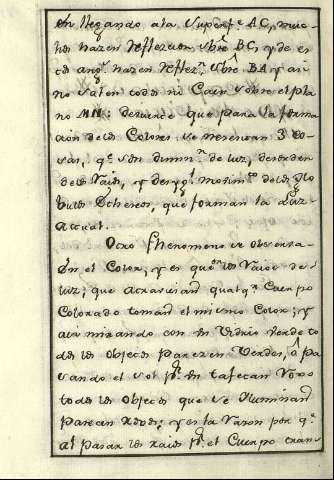 en llegando a la superfe AC, muc
hos hazen reflexion sbre BC, y de es
tos angs hazen reflexn sbre BA y asi
no salen todos ni caen sobre el pla
no MN: de suerte que para la forma
cion de los Colores se necesitan 3 co
sas, qe son diminn de luz, desorden
de los raios, y desigl movimto de los glo
bulos Ethereos, que forman la Luz
actual.
Otro Phenomeno se observa
en el Color, y es que los raios de
luz, que atraviesan qualqr Cuerpo
Colorado toman el mismo Color; y
asi mirando con un vidrio verde to
dos los objetos parezen verdes, o pa
sando el sol pr un tafetan roxo
todos los objetos que se iluminan
parecen roxos; y es la razon por qe
al pasar los raios pr el Cuerpo tran